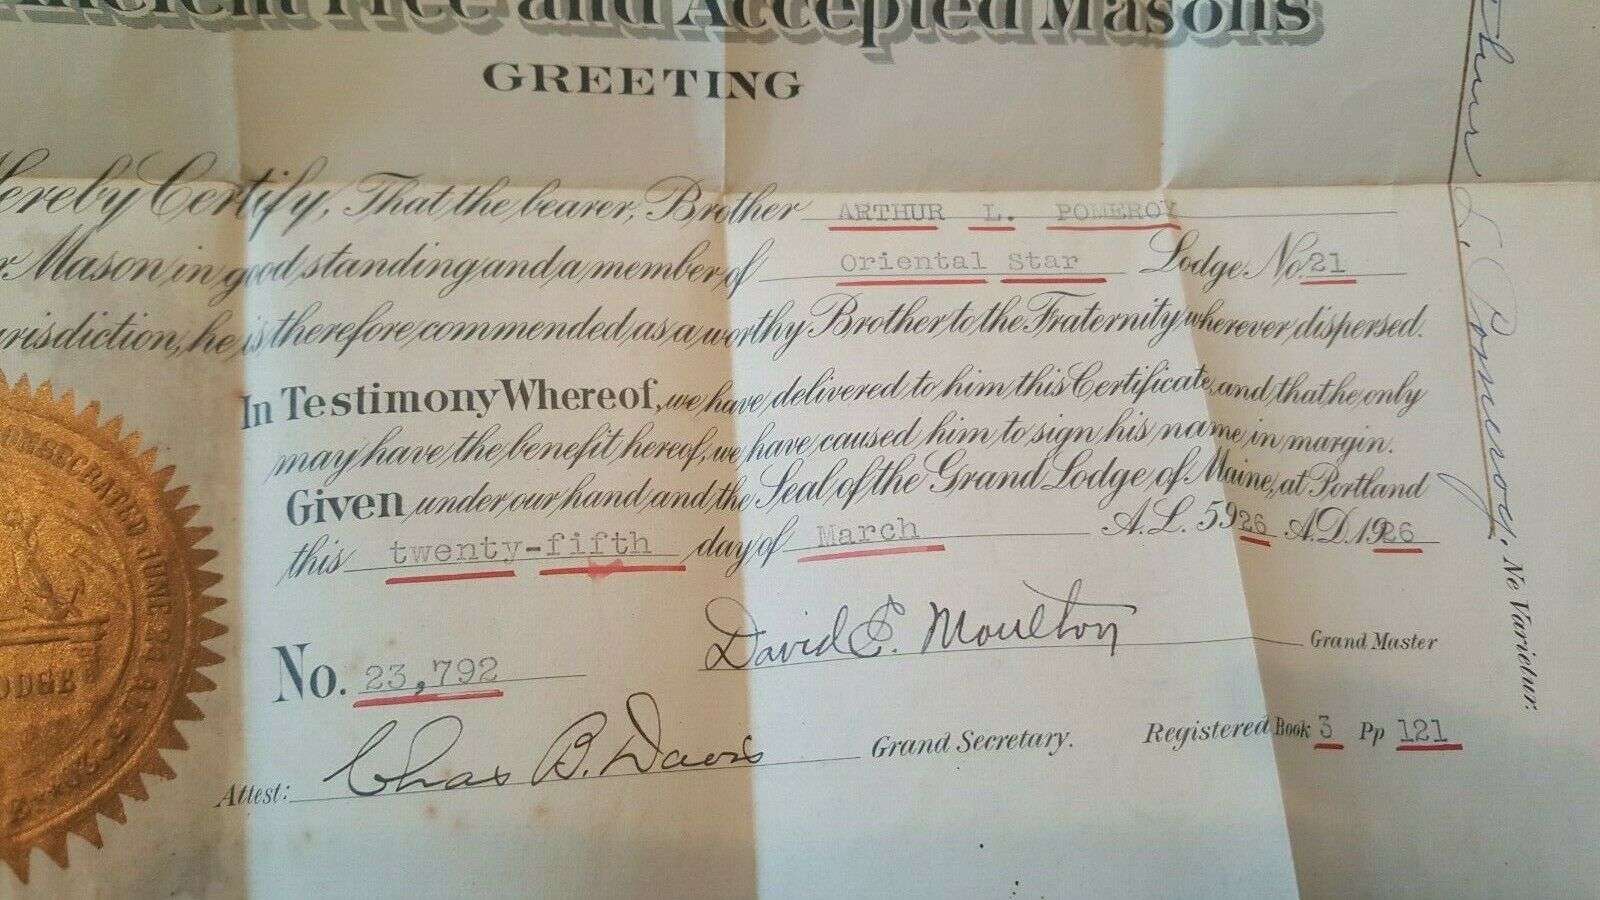 Ancient Free and Accepted Masons
GREETING
Hereby Certify, That the bearer, Brother ARTHUR L. POMEROY
r Mason in good standing and a member of Oriental Star Lodge No. 21
urisdiction, he is therefore commended as a worthy Brother to the Fraternity wherever dispersed.
In Testimony Whereof, we have delivered to him this Certificate, and that he only
may have the benefit hereof, we have caused him to sign his name in margin.
Given under our hand and the Seal of the Grand Lodge of Maine, at Portland
this twenty-fifth day of March A.L. 5926 A.D. 1926
No. 23,792
David E. Moulton Grand Master
Attest: Chas B. Davis Grand Secretary.
Registered Book 3 Pp 121
thur L. Pomeroy, Ne Varietur.
CONSECRATED JUNE 24
ODGE